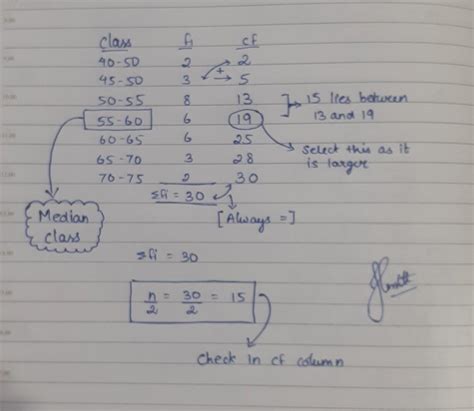 Class fi cf
40-50 2 2
45-50 3 + 5
50-55 8 13
15 lies between
13 and 19
55-60 6 19
60-65 6 25
Select this as it
is larger
65-70 3 28
70-75 2 30
Σfi = 30
[Always =]
Median
class
Σfi = 30
n/2 = 30/2 = 15
Check in cf column